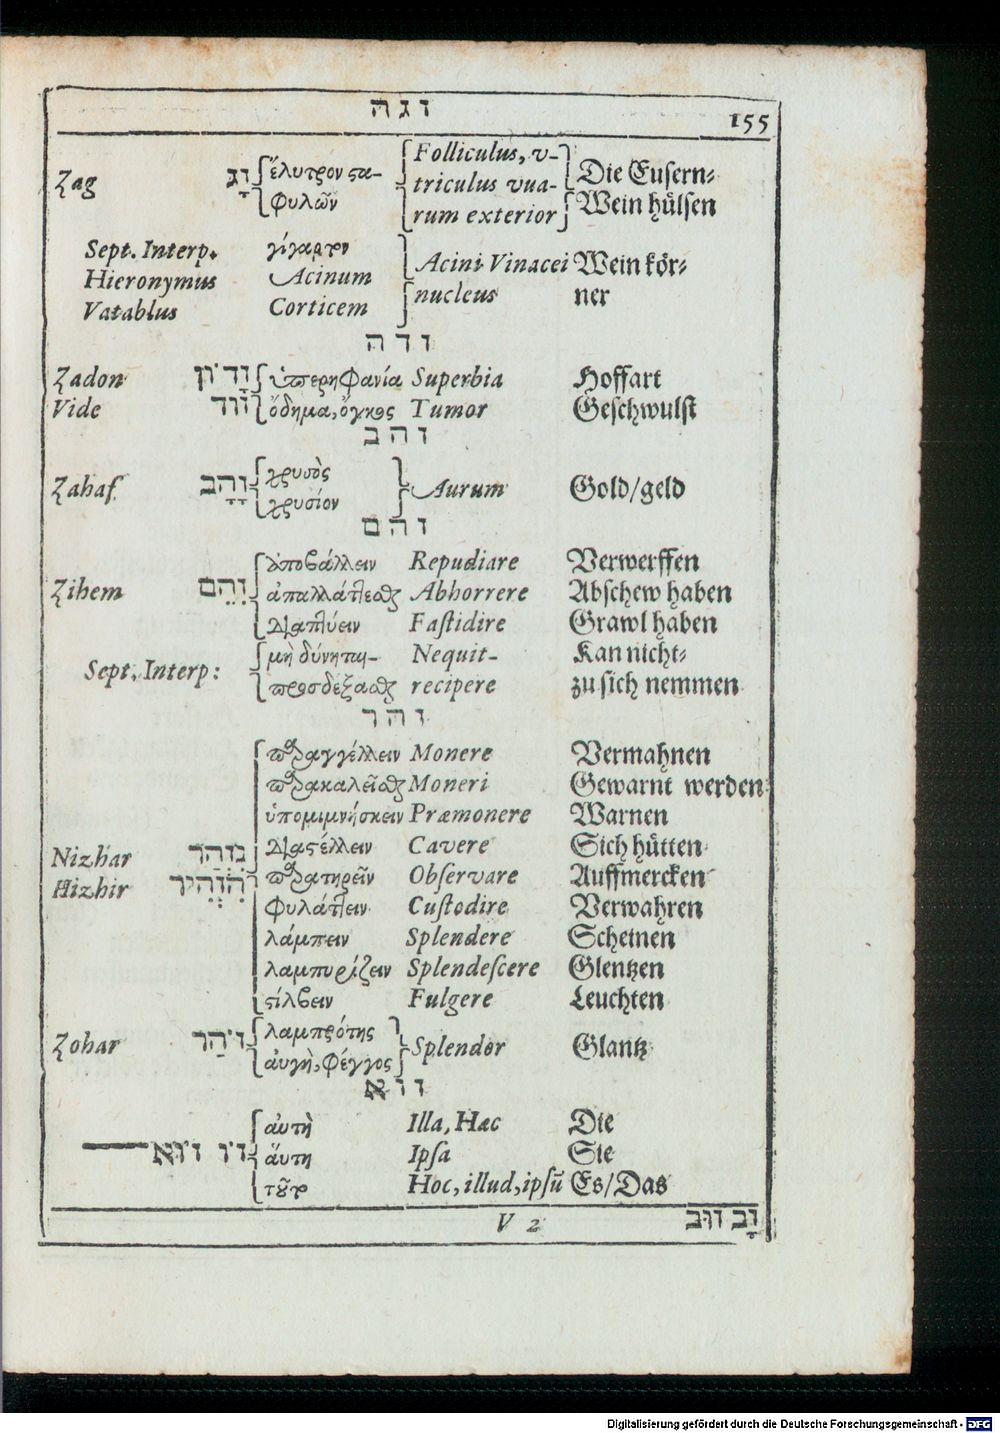 ז ג ה
155
Zag זָג ἔλυτρον στα- Folliculus, v- Die Eusern-
φυλῶν triculus vua- Wein hülsen
rum exterior
Sept. Interp. γίγαρτον Acini Vinacei Wein kör-
Hieronymus Acinum nucleus ner
Vatablus Corticem
ז ד ה
Zadon זָדוֹן ὑπερηφανία Superbia Hoffart
Vide זוד ὄδημα, ὄγκος Tumor Geschwulst
ז ה ב
Zahaf זָהָב χρυσὸς Aurum Gold/geld
χρυσίον
ז ה ם
ἀποβάλλειν Repudiare Verwerffen
Zihem זִהֵם ἀπαλλάττεσθαι Abhorrere Abschew haben
διαπτύειν Fastidire Grawl haben
Sept. Interp: μὴ δύνηται- Nequit- Kan nicht-
προσδέξασθαι recipere zu sich nemmen
ז ה ר
παραγγέλλειν Monere Vermahnen
παρακαλεῖσθαι Moneri Gewarnt werden
ὑπομιμνήσκειν Præmonere Warnen
Nizhar נִזְהַר διαστέλλειν Cavere Sich hütten
Hizhir הִזְהִיר παρατηρεῖν Observare Auffmercken
φυλάττειν Custodire Verwahren
λάμπειν Splendere Scheinen
λαμπυρίζειν Splendescere Glentzen
στίλβειν Fulgere Leuchten
Zohar זֹהַר λαμπρότης Splendor Glantz
αὐγὴ, φέγγος
ז ו א
αὐτὴ Illa, Hæc Die
זוֹ זוֹא αὕτη Ipsa Sie
τοῦτο Hoc, illud, ipsū Es/Das
V 2 זָב זוּב
Digitalisierung gefördert durch die Deutsche Forschungsgemeinschaft - DFG